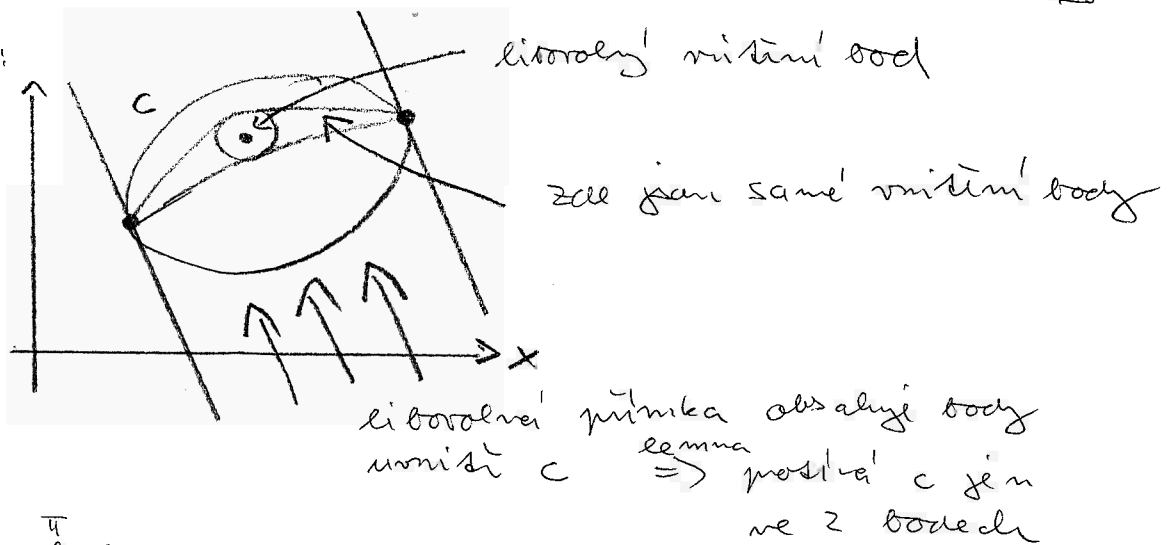 libovolný vnitřní bod
C
zde jsou samé vnitřní body
x
libovolná přímka obsahuje body
uvnitř C lemma => protíná C jen
ve 2 bodech